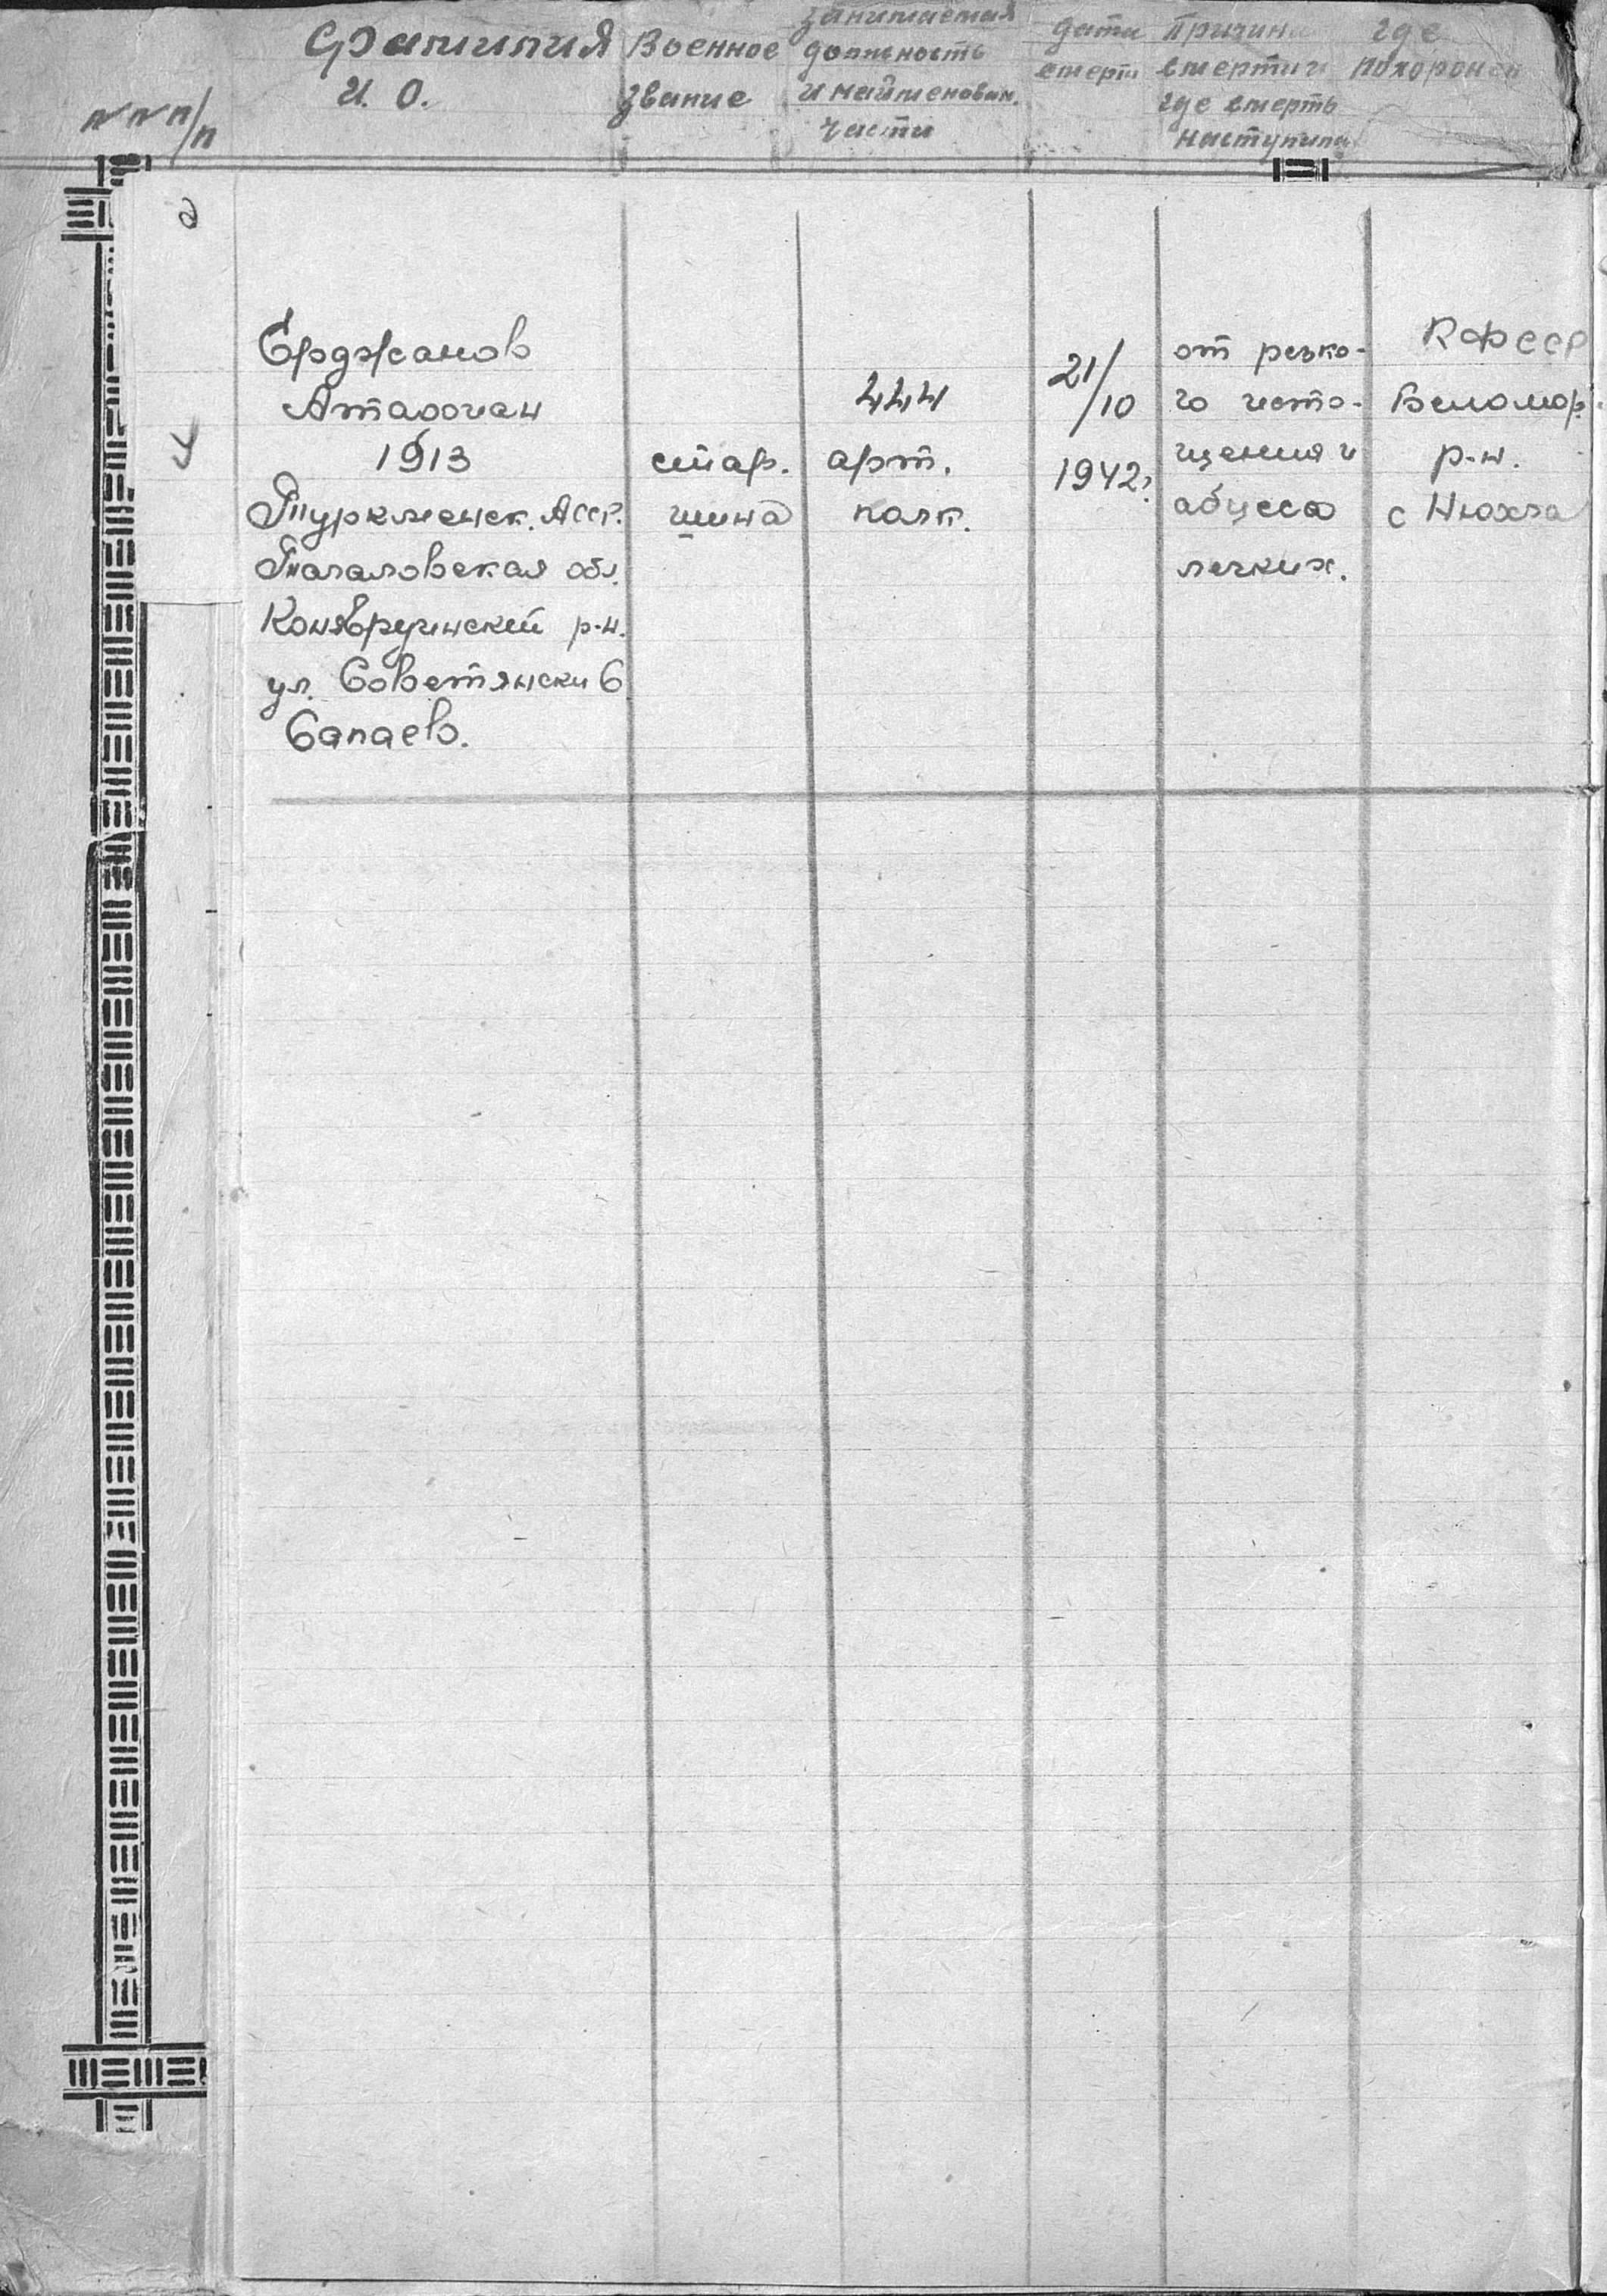 №№ п/п
Фамилия
И. О.
Военное
звание
занимаемая
должность
и найменован.
части
дата
смерти
Причина
смерти и
где смерть
наступила
где
похоронен
Ерджанов
1913
Туркменск. АССР.
обл.
р-н.
ул. Советянски 6
Сапаево.
стар.
шина
444
арт.
полк.
21/10
1942г.
от резко-
го исто-
щения и
абцесса
легких.
КФССР
Беломор.
р-н.
с Нюхча